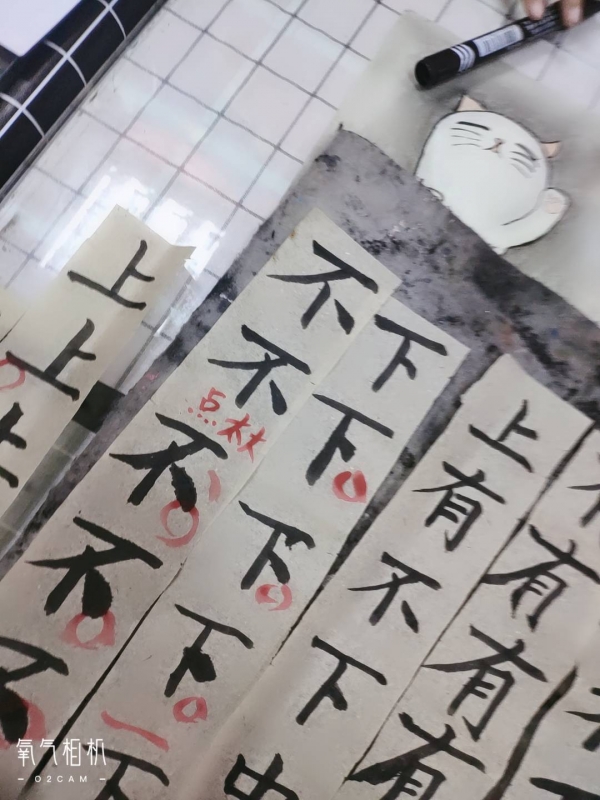 上上上
不不不不不
点太大
下下下下下
上有不下中
有有有
氧气相机
- O2CAM -